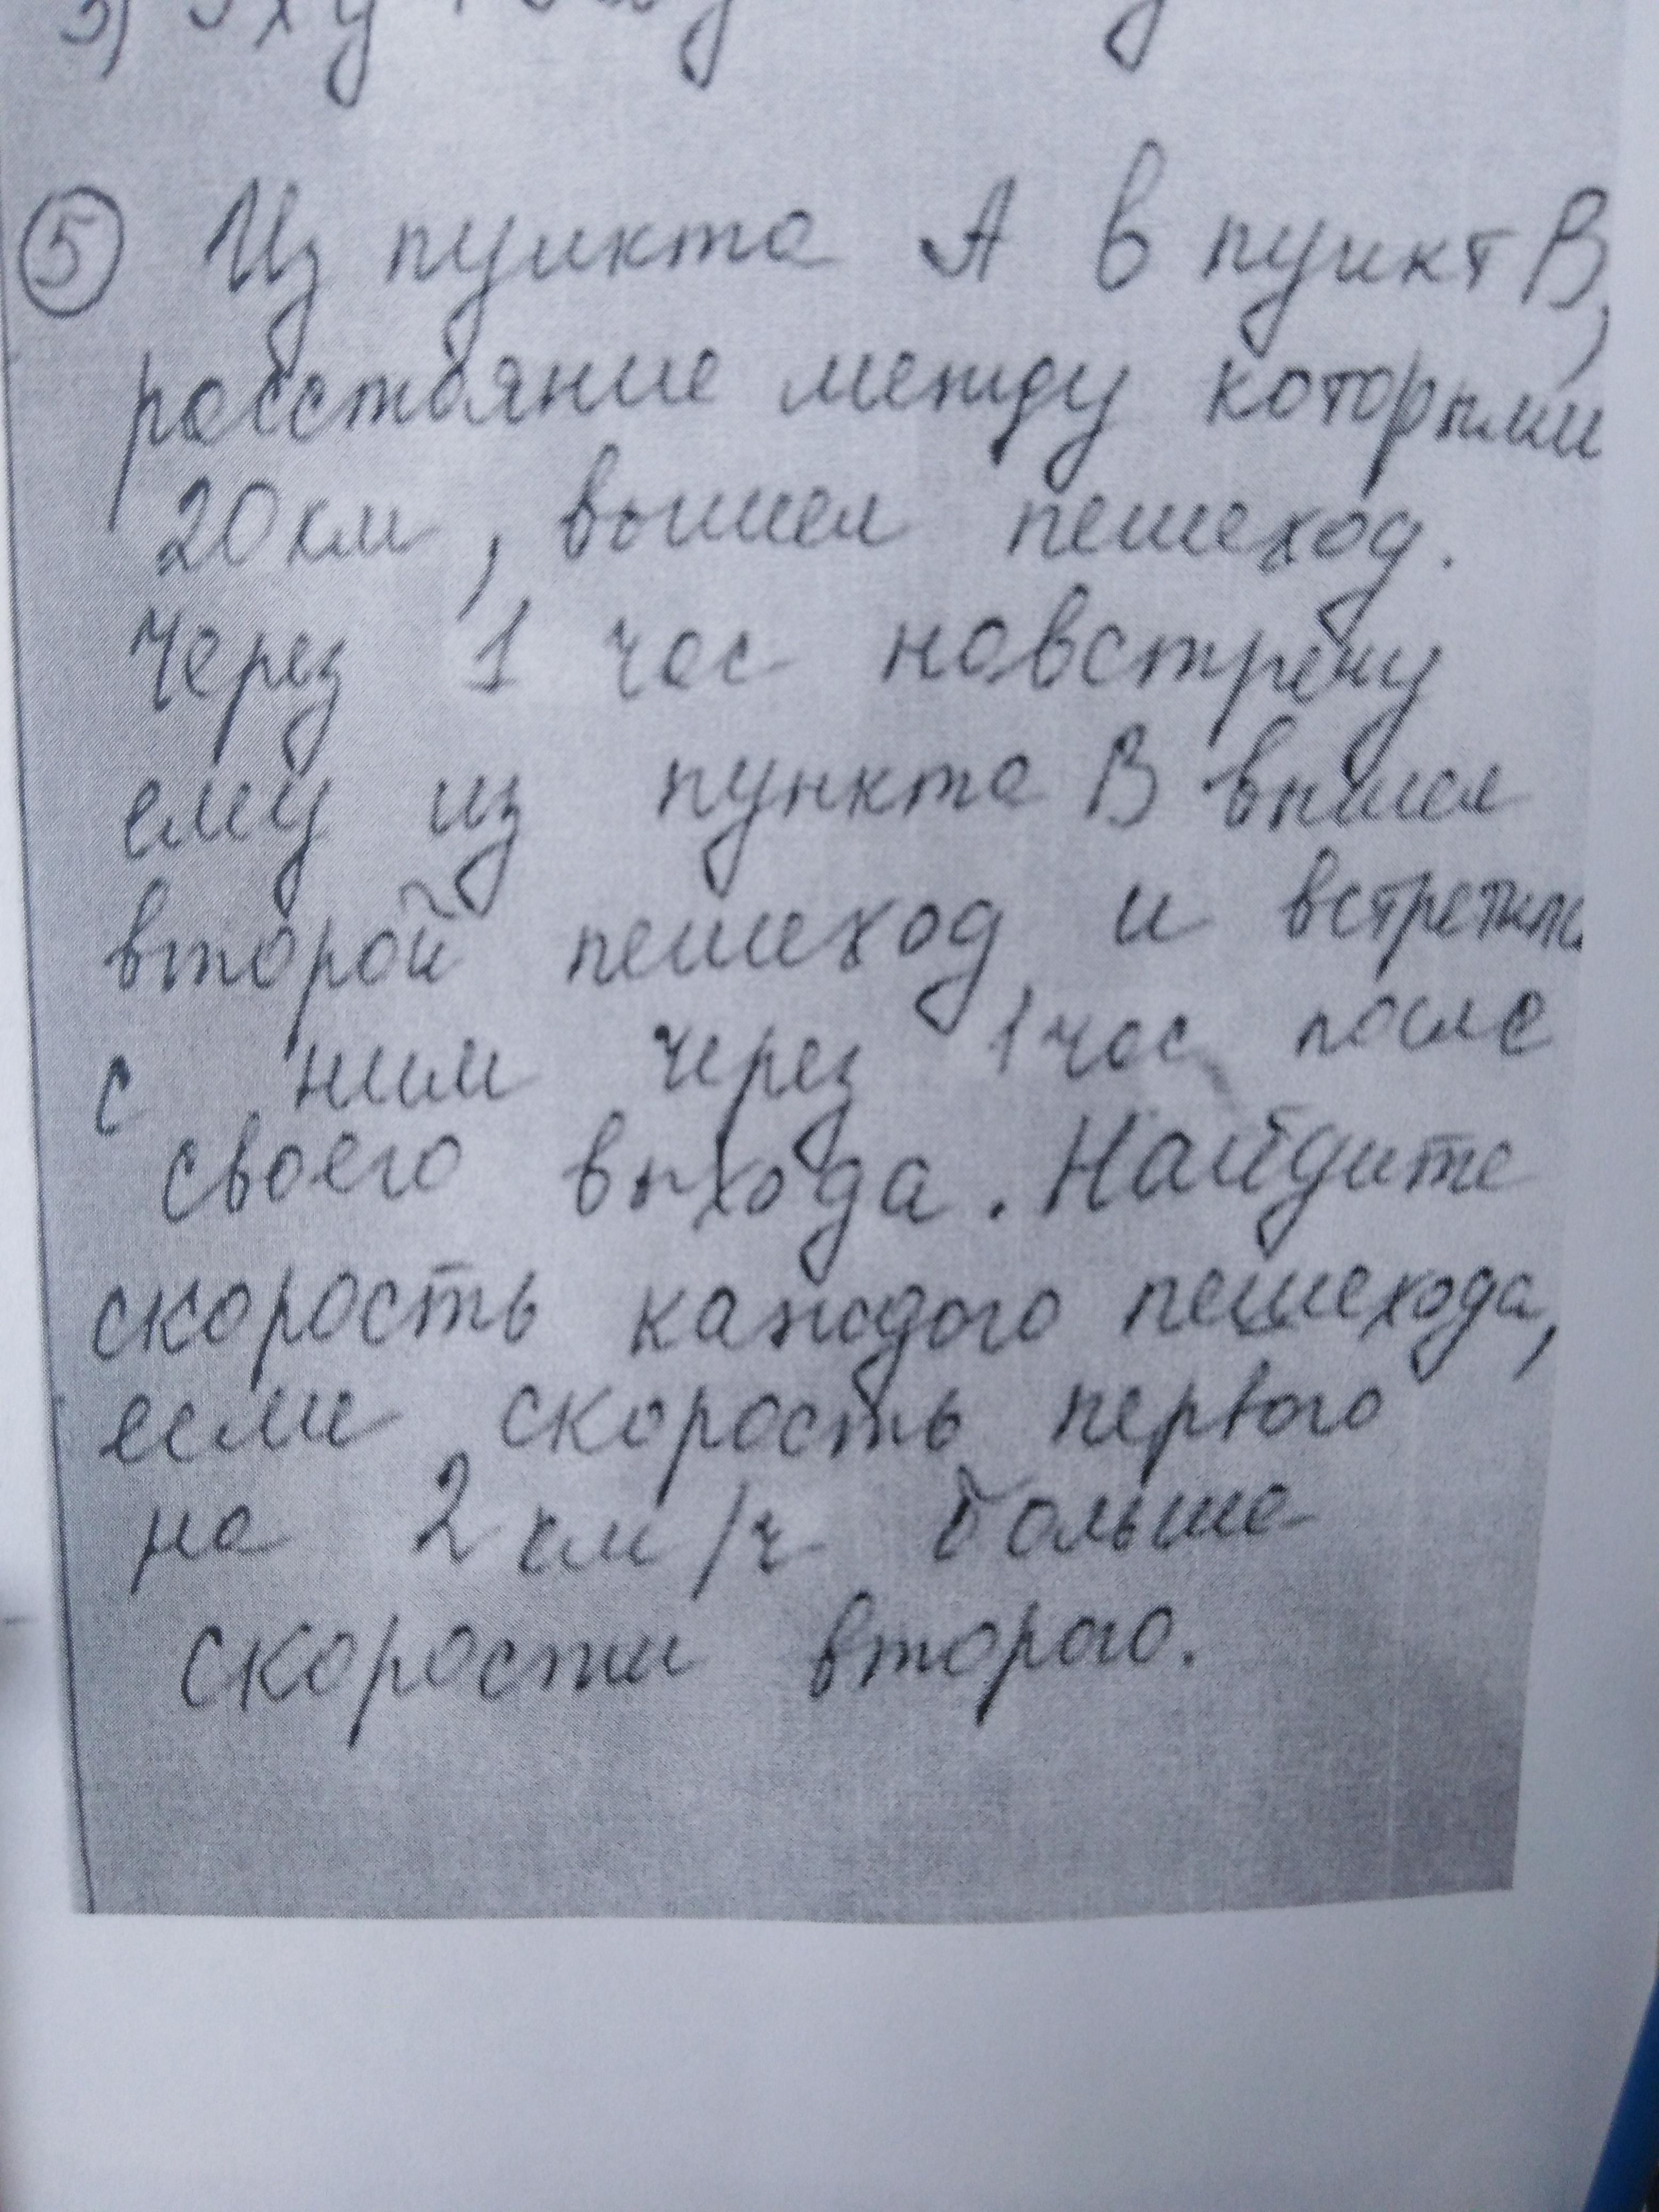 5 Из пункта А в пункт В,
расстояние между которыми
20 км, вышел пешеход.
Через 1 час навстречу
ему из пункта В вышел
второй пешеход и встретился
с ним через 1 час после
своего выхода. Найдите
скорость каждого пешехода,
если скорость первого
на 2 км/ч больше
скорости второго.